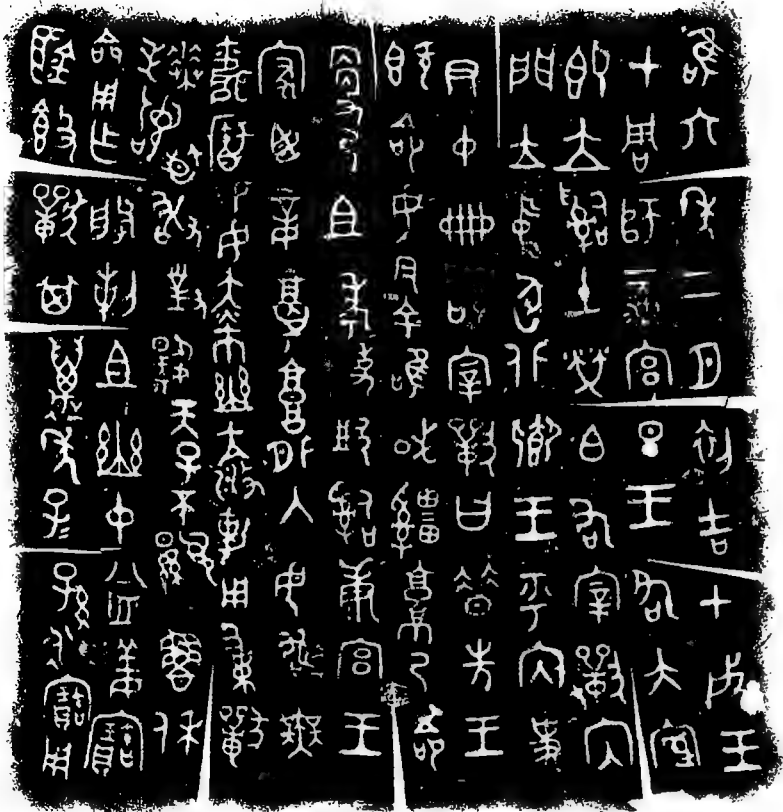 隹六年二月初吉甲戌王
才周師彔宮旦王各大室
即立𤔲土焚白右宰獸入
門立中廷北鄉王乎内史
尹中冊命宰獸曰昔先王
既命女今余唯或𤕌𤲷乃命
更乃且考事𣪊𤔲康宮王
家臣妾𩫏外入毋敢無
聞知易女赤巿幽亢攸勒用事獸
拜𩒨首敢對揚天子不顯魯休
命用乍朕剌且幽中益姜寶
匜𣪘獸其萬年子子孫孫永寶用